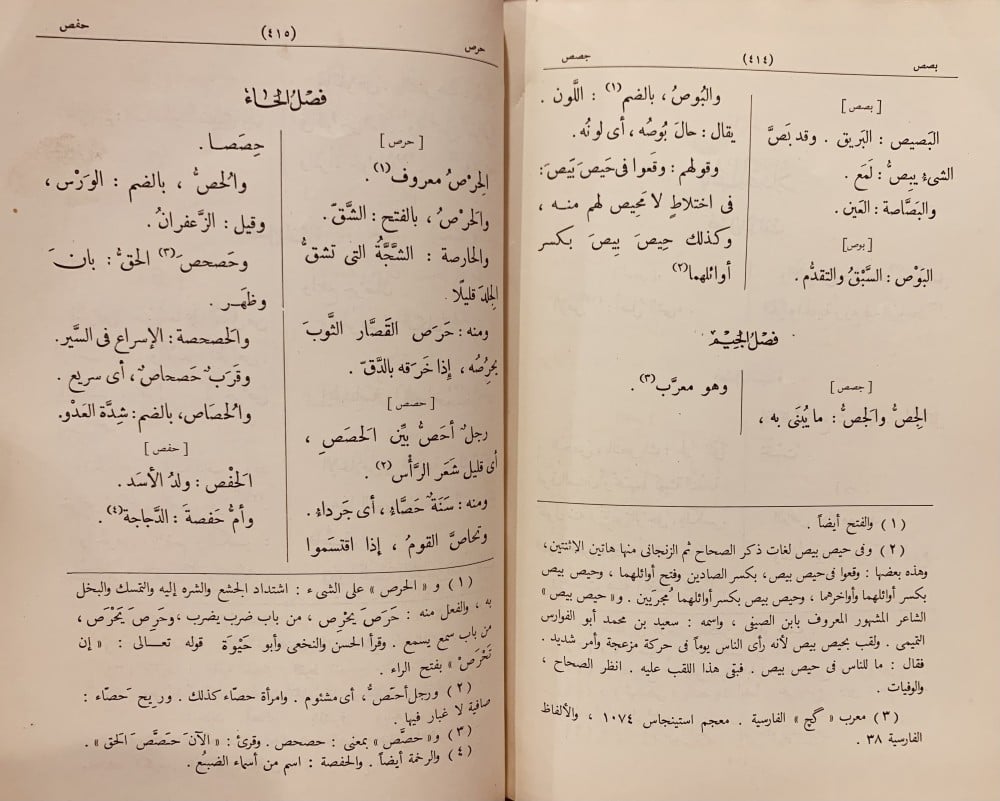 بصص
(٤١٤)
جصص
[ بصص ]
البَصيص : البَريق . وقد بَصَّ
الشىءُ يبِصُّ : لَمَعَ .
والبَصَّاصة : العَين .
[ بوص ]
البَوْص : السَّبْقُ والتقدُّم .
والبُوصُ ، بالضم(١) : اللَّون .
يقال : حالَ بُوصُه ، أى لونُه .
وقولهم : وقَعوا فى حَيصَ بَيصَ :
فى اختلاطٍ لا مَحِيص لهم منه ،
وكذلك حِيصَ بِيصَ بكسر
أوائلهما(٢)
فصْلُ الجيْم
[ جصص ]
الجِصُّ والجَصُّ : ما يُبْنَى به ،
وهو معرَّب(٣) .
(١) والفتح أيضاً .
(٢) وفى حيص بيص لغات ذكر الصحاح ثم الزنجانى منها هاتين الاثنتين ،
وهذه بعضها : وقعوا فى حيص بيص ، بكسر الصادين وفتح أوائلهما ، وحيص بيص
بكسر أوائلهما وأواخرهما ، وحيص بيص بكسر أوائلهما مُجريَين . و « حيص بيص »
الشاعر المشهور المعروف بابن الصيفى ، واسمه : سعيد بن محمد أبو الفوارس
التميمى . ولقب بحيص بيص لأنه رأى الناس يوماً فى حركة مزعجة وأمر شديد .
فقال : ما للناس فى حيص بيص . فبقى هذا اللقب عليه . انظر الصحاح ،
والوفيات .
(٣) معرب « گچ » الفارسية . معجم استينجاس ١٠٧٤ ، والألفاظ
الفارسية ٣٨ .
حرص
(٤١٥)
حفص
فصْلُ الحَاء
[ حرص ]
الحِرْصُ معروف(١) .
والحَرْصُ ، بالفتح : الشَّقّ .
والحارصة : الشَّجَّةُ التى تشقُّ
الجِلدَ قليلًا .
ومنه : حَرَص القَصَّار الثَّوبَ
يحرِصُه ، إذا خَرَقه بالدَّقّ .
[ حصص ]
رجلٌ أحَصُّ بيِّن الحَصَصِ ،
أى قليل شَعَر الرَّأْس(٢) .
ومنه : سَنَةٌ حَصَّاءُ ، أى جَرداءُ .
وتحاصَّ القومُ ، إذا اقتسَموا
حِصَصا .
والحُصُّ ، بالضم : الوَرْس ،
وقيل : الزَّعفرانُ .
وحَصحصَ(٣) الحَقُّ : بانَ
وظهَر .
والحَصحصة : الإسراع فى السَّير .
وقَرَبٌ حَصحاصٌ ، أى سريع .
والحُصَاص ، بالضم : شِدَّة العَدْو .
[ حفص ]
الحَفْص : ولدُ الأسَد .
وأمُّ حَفصةَ : الدَّجاجة(٤) .
(١) و « الحرص » على الشىء : اشتداد الجشع والشره إليه والتمسك والبخل
به ، والفعل منه : حَرَصَ يَحْرِص ، من باب ضرب يضرب ، وحَرِصَ يَحْرَص ،
من باب سمع يسمع . وقرأ الحسن والنخعى وأبو حَيْوَة قوله تعالى : « إن
تَحْرَصْ » بفتح الراء .
(٢) ورجل أحَصُّ ، أى مشئوم . وامرأة حصّاء كذلك . وريح حَصّاء :
صافية لا غبار فيها .
(٣) و « حَصَّصَ » بمعنى : حصحص . وقرئ : « الآن حَصَّصَ الحق » .
(٤) والرخمة أيضاً . والحفصة : اسم من أسماء الضبُع .